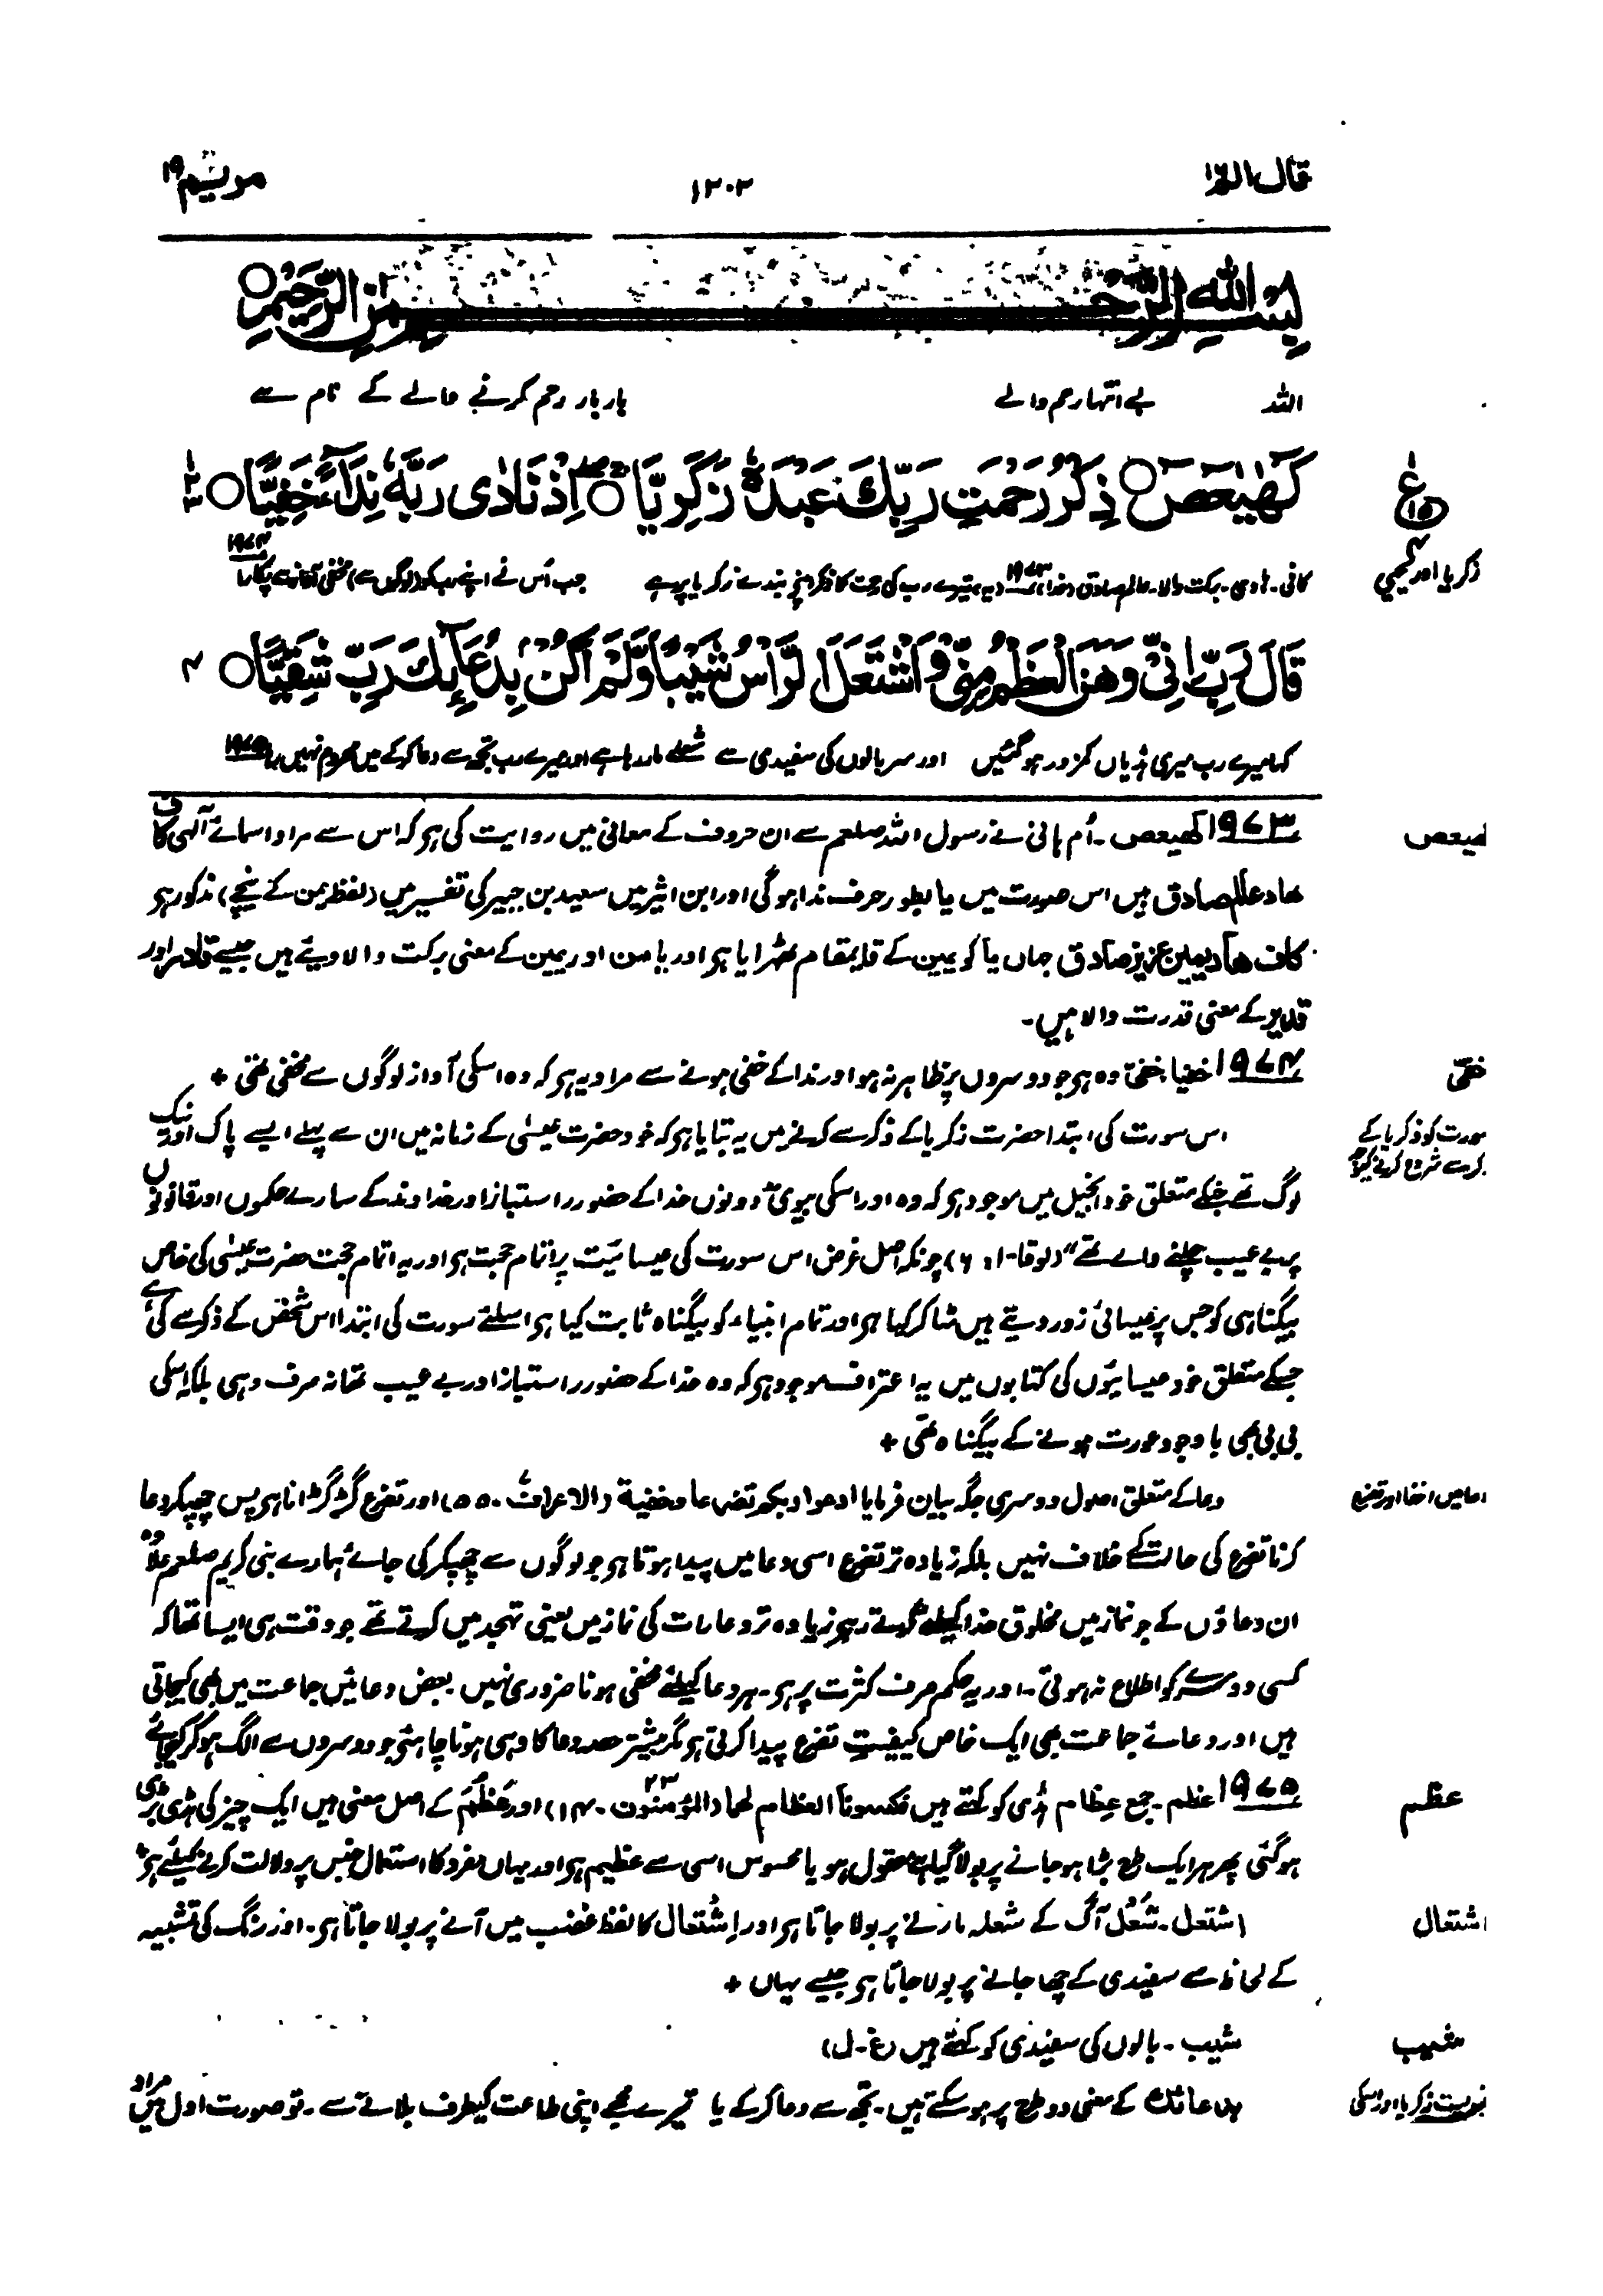 قال الم ۱۶
۱۲۰۲
مریم ۱۹
بِسْمِ اللهِ الرَّحْمٰنِ الرَّحِیْمِ
اللہ بے انتہا رحم والے بار بار رحم کرنے والے کے نام سے
کٓهٰیٰعٓصٓ ذِکْرُ رَحْمَتِ رَبِّكَ عَبْدَهٗ زَکَرِیَّا اِذْ نَادٰی رَبَّهٗ نِدَآءً خَفِیًّا
ع
زکریا اور یحییٰ
کافی۔ ہادی۔ برکت والا۔ عالم صادق (خدا) ۱۹۷۳ (یہ) تیرے رب کی رحمت کا ذکر اپنے بندے زکریا پر ہے جب اُس نے اپنے رب کو (لوگوں سے) مخفی آواز سے پکارا ۱۹۷۴
قَالَ رَبِّ اِنِّیْ وَهَنَ الْعَظْمُ مِنِّیْ وَاشْتَعَلَ الرَّاْسُ شَیْبًا وَّلَمْ اَکُنْۢ بِدُعَآئِكَ رَبِّ شَقِیًّا ۴
کہا میرے رب میری ہڈیاں کمزور ہو گئیں اور سر بالوں کی سفیدی سے شعلے مار رہا ہے اور میرے رب تجھ سے دعا کر کے میں محروم نہیں رہا ۱۹۷۵
کھیعص
۱۹۷۳ کھیعص۔ اُم ہانی نے رسول اللہ صلعم سے ان حروف کے معانی میں روایت کی ہو کہ اس سے مراد اسمائے الٰہی کاف
ھاد عالم صادق ہیں اس صورت میں یا بطور حرف ندا ہو گی اور ابن اثیر میں سعید بن جبیر کی تفسیر میں (لفظ یمن کے نیچے) مذکور ہو
کاف ھاد یمین عزیز صادق جہاں یا کو یمین کے قایمقام ٹھہرایا ہو اور یامن اور یمین کے معنی برکت والا دیئے ہیں جیسے قادر اور
قدیر کے معنی قدرت والا ہیں۔
خفیّ
۱۹۷۴ خفیا خفیّ وہ ہو جو دوسروں پر ظاہر نہ ہو اور ندا کے خفی ہونے سے مراد یہ ہو کہ وہ اسکی آواز لوگوں سے مخفی تھی +
سورت کو زکریا کے
ذکر سے شروع کرنے کی وجہ
اس سورت کی ابتدا حضرت زکریا کے ذکر سے کرنے میں یہ بتایا ہو کہ خود حضرت عیسٰی کے زمانہ میں ان سے پہلے ایسے پاک اور نیک
لوگ تھے جنکے متعلق خود انجیل میں موجود ہو کہ وہ اور اسکی بیوی "دونوں خدا کے حضور راستباز اور خداوند کے سارے حکموں اور قانونوں
پر بے عیب چلنے والے تھے" (لوقا۔ ۱: ۶) چونکہ اصل غرض اس سورت کی عیسائیت پر اتمام حجت ہو اور یہ اتمام حجت حضرت عیسٰی کی خاص
بیگناہی کو جس پر عیسائی زور دیتے ہیں مٹا کر کیا ہو اور تمام انبیاء کو بیگناہ ثابت کیا ہو اسلئے سورت کی ابتدا اس شخص کے ذکر سے کی ہے
جسکے متعلق خود عیسائیوں کی کتابوں میں یہ اعتراف موجود ہو کہ وہ خدا کے حضور راستباز اور بے عیب تھا نہ صرف وہی بلکہ اسکی
بی بی بھی باوجود عورت ہونے کے بیگناہ تھی +
دعا میں اخفا اور تضرع
دعا کے متعلق اصول دوسری جگہ بیان فرمایا ادعوا ربکم تضرعا وخفیة (الاعراف۔ ۵۵) اور تضرع گڑگڑانا ہو پس چھپکر دعا
کرنا تضرع کی حالت کے خلاف نہیں بلکہ زیادہ تر تضرع اسی دعا میں پیدا ہوتا ہو جو لوگوں سے چھپکر کی جائے ہمارے نبی کریم صلعم علاوہ
ان دعاؤں کے جو نماز میں مخلوق خدا کیلئے کرتے رہو زیادہ تر دعا رات کی نماز میں یعنی تہجد میں کرتے تھے جو وقت ہی ایسا تھا کہ
کسی دوسرے کو اطلاع نہ ہوتی۔ اور یہ حکم صرف کثرت پر ہو۔ ہر دعا کیلئے مخفی ہونا ضروری نہیں۔ بعض دعائیں جماعت میں بھی کیجاتی
ہیں اور دعائے جماعت بھی ایک خاص کیفیت تضرع پیدا کرتی ہو مگر بیشتر حصہ دعا کا وہی ہونا چاہئے جو دوسروں سے الگ ہو کر کیجائے
عظم
۱۹۷۵ عظم۔ جمع عِظام ہڈی کو کہتے ہیں فکسونا العظام لحما (المؤمنون ۲۳۔ ۱۴) اور عَظُمَ کے اصل معنی ہیں ایک چیز کی ہڈی بڑی
ہو گئی پھر ہر ایک طرح بڑا ہو جانے پر بولا گیا ہے معقول ہو یا محسوس اسی سے عظیم ہو اور یہاں مفرد کا استعمال جنس پر دلالت کرنے کیلئے ہو
اشتعال
اشتعل۔ شُعْل آگ کے شعلہ مارنے پر بولا جاتا ہو اور اِشتعال کا لفظ غضب میں آنے پر بولا جاتا ہو۔ اور رنگ کی تشبیہ
کے لحاظ سے سفیدی کے چھا جانے پر بولا جاتا ہو جیسے یہاں +
شیب
شیب۔ بالوں کی سفیدی کو کہتے ہیں (غ۔ ل)
زکریا اور اسکی
بدعائک کے معنی دو طرح پر ہو سکتے ہیں۔ تجھ سے دعا کر کے یا تیرے مجھے اپنی طاعت کیطرف بلانے سے۔ تو صورت اول میں مراد